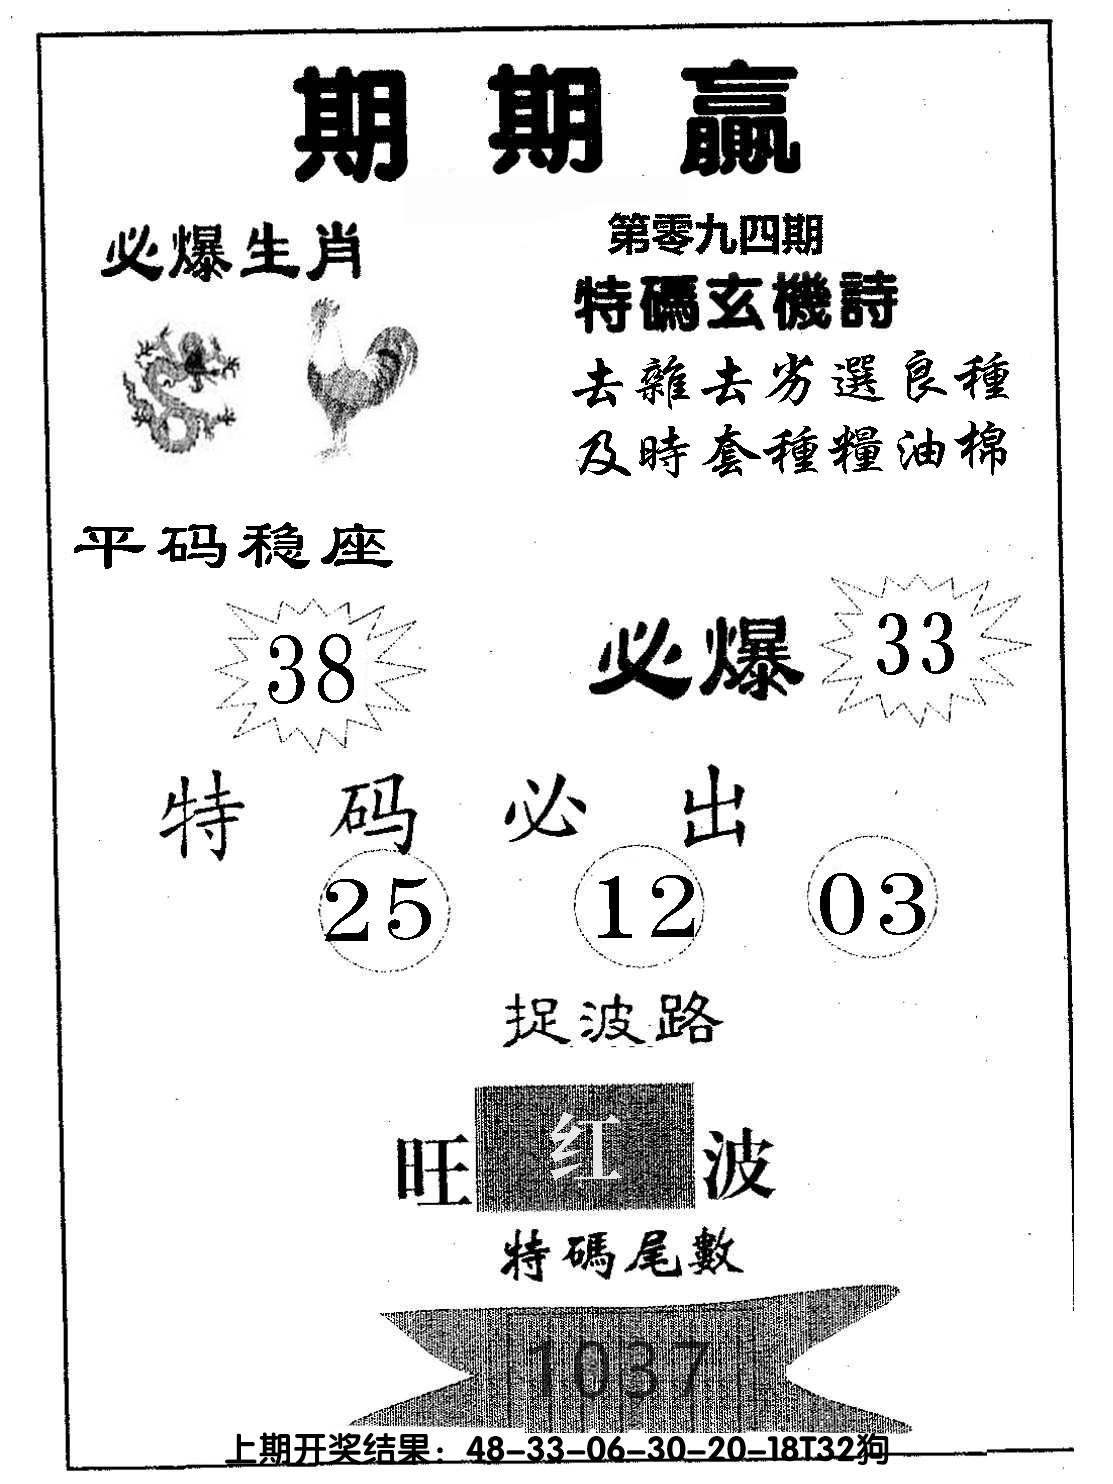 期期赢
必爆生肖
第零九四期
特碼玄機詩
去雜去劣選良種
及時套種糧油棉
平码稳座
38
必爆
33
特码必出
25 12 03
捉波路
旺红波
特碼尾數
1037
上期开奖结果：48-33-06-30-20-18T32狗